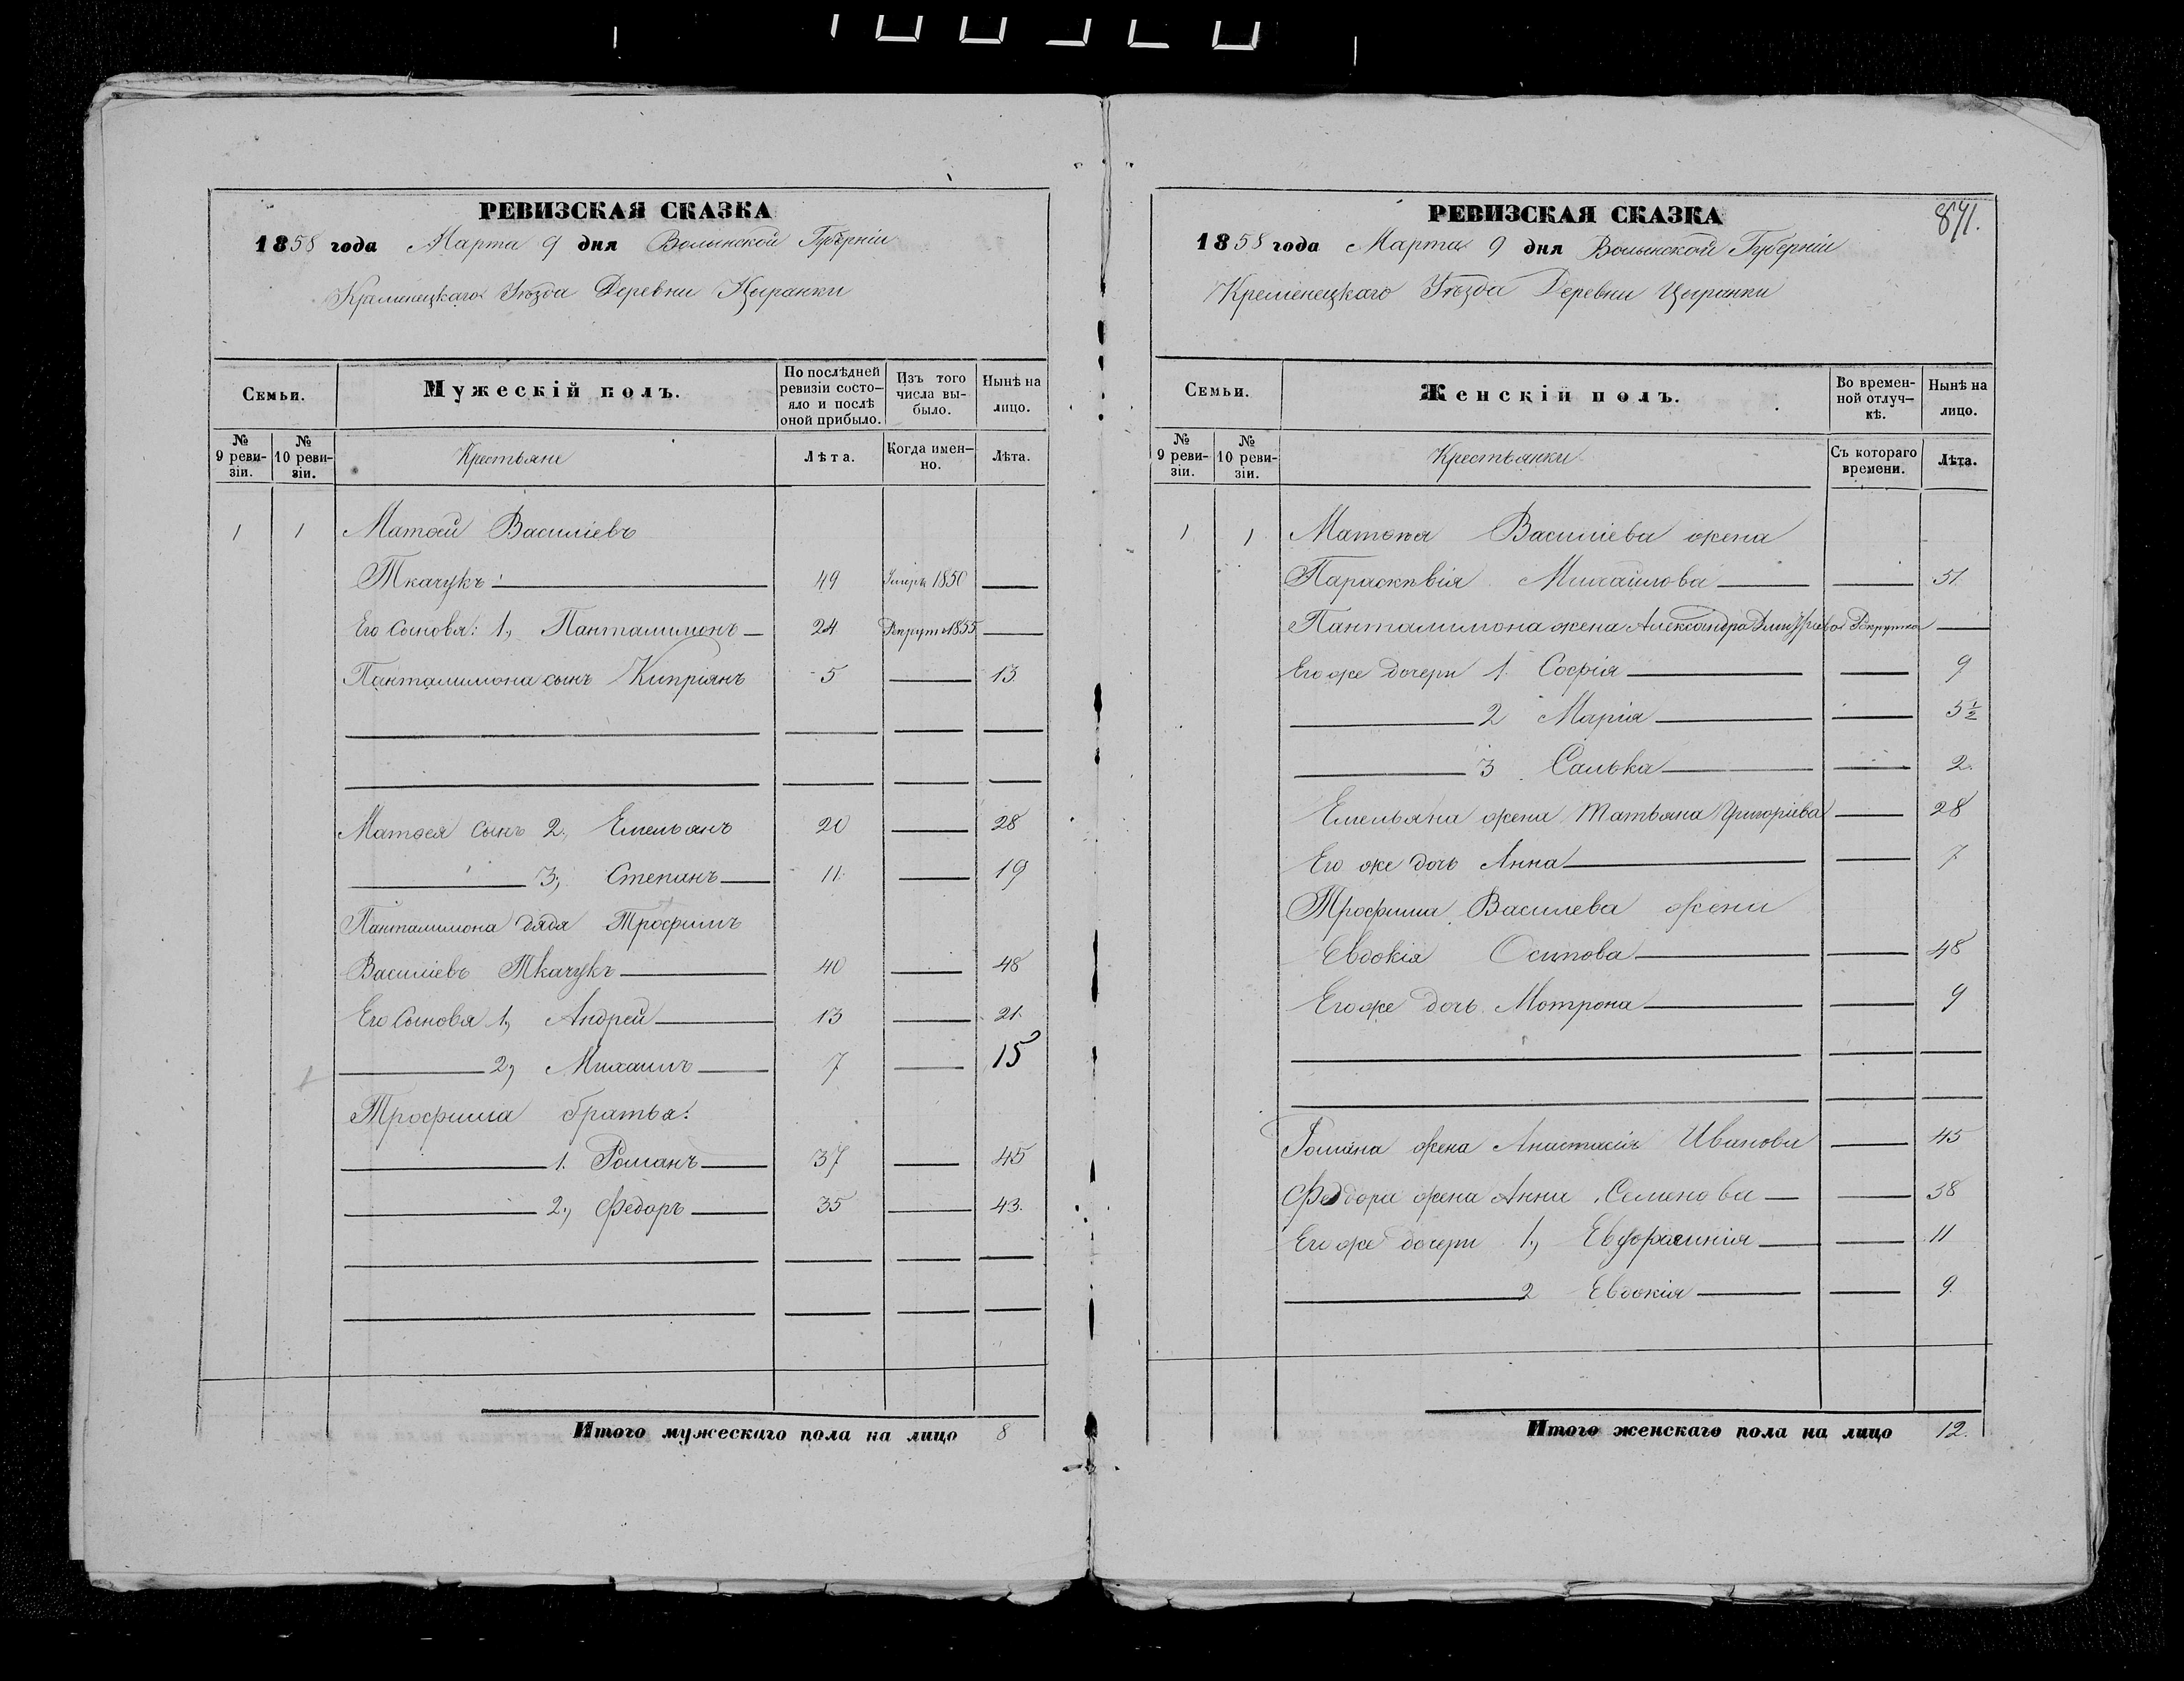 РЕВИЗСКАЯ СКАЗКА
1858 года Марта 9 дня Волынской Губерніи
Кременецкаго Уѣзда Деревни Цыранки
Семьи.
Мужескій полъ.
По послѣдней ревизіи состо-
яло и послѣ
оной прибыло.
Изъ того
числа вы-
было.
Нынѣ на
лицо.
№
9 реви-
зіи.
№
10 реви-
зіи.
Крестьяне
Лѣта.
Когда имен-
но.
Лѣта.
1 1 Матѳей Василіевъ
Ткачукъ: 49 Умеръ 1850 —
Его Сыновья: 1, Панталимонъ — 24 Рекрутъ 1855 —
Панталимона сынъ Кипріянъ 5 — 13
Матѳея Сынъ 2, Емельянъ 20 — 28
— 3, Степанъ — 11 — 19
Панталимона дядя Трофимъ
Василіевъ Ткачукъ — 40 — 48
Его Сыновья 1, Андрей — 13 — 21.
— 2, Михаилъ — 7 — 15
Трофима братья:
— 1. Романъ — 37 — 45
— 2, Федоръ — 35 — 43.
Итого мужескаго пола на лицо 8
РЕВИЗСКАЯ СКАЗКА
871.
1858 года Марта 9 дня Волынской Губерніи
Кременецкаго Уѣзда Деревни Цыранки
Семьи.
Женскій полъ.
Во времен-
ной отлуч-
кѣ.
Нынѣ на
лицо.
№
9 реви-
зіи.
№
10 реви-
зіи.
Крестьянки
Съ котораго
времени.
Лѣта.
1 1 Матѳея Василіева жена
Параскѣвія Михайлова — — 51.
Панталимона жена Александра Дмитріева Рекрутка —
Его же дочери 1. Софія — — 9
— 2 Марія — — 5½
— 3 Салька — — 2.
Емельяна жена Татьяна Григоріева — 28
Его же дочь Анна — — 7
Трофима Василева жена
Евдокія Осипова — — 48
Его же дочь Мотрона — — 9
Романа жена Анастасія Иванова — 45
Федора жена Анна Семенова — — 38
Его же дочери 1, Евфрасинія — — 11
— 2 Евдокія — — 9.
Итого женскаго пола на лицо 12.